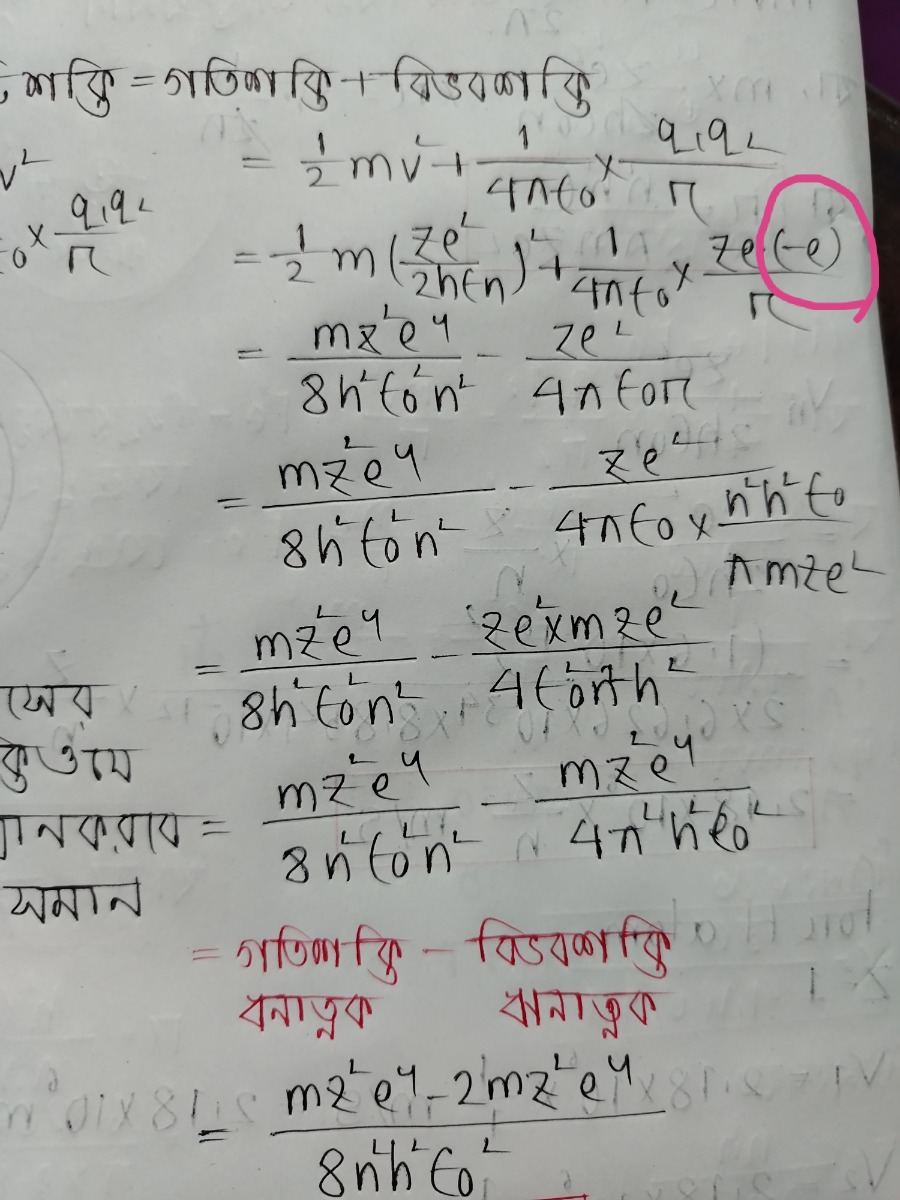 শক্তি = গতিশক্তি + বিভবশক্তি
v² = 1/2 mv² + 1/4πε₀ × q₁q₂/r
ε₀ × q₁q₂/r
= 1/2 m (ze²/2hε₀n)² + 1/4πε₀ × ze(-e)/r
= mz²e⁴/8h²ε₀²n² - ze²/4πε₀r
= mz²e⁴/8h²ε₀²n² - ze²/4πε₀ × n²h²ε₀/πmze²
= mz²e⁴/8h²ε₀²n² - ze² × mze²/4ε₀²n²h²
= mz²e⁴/8h²ε₀²n² - mz²e⁴/4n²h²ε₀²
সমান
= গতিশক্তি - বিভবশক্তি
ধনাত্নক ঋনাত্নক
= mz²e⁴ - 2mz²e⁴/8n²h²ε₀²